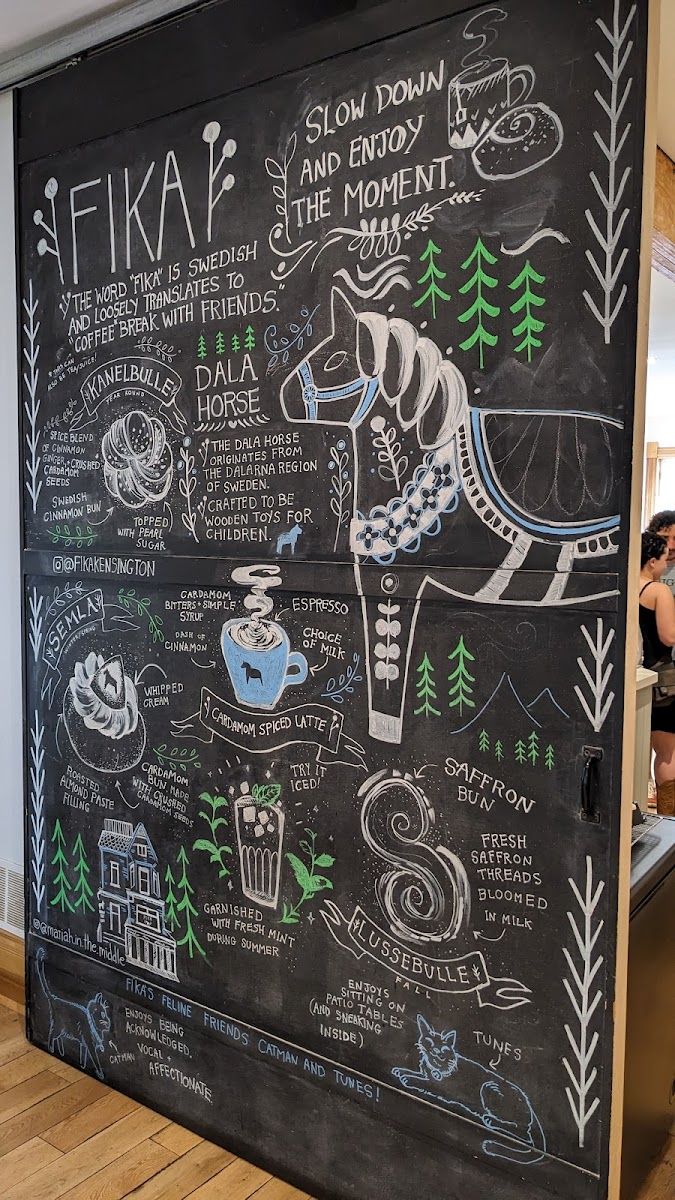 FIKA
SLOW DOWN
AND ENJOY
THE MOMENT.
"THE WORD "FIKA" IS SWEDISH
AND LOOSELY TRANSLATES TO
"COFFEE" BREAK WITH FRIENDS."
ALSO BE TEA/JUICE!
KANELBULLE
YEAR ROUND
SPICE BLEND
OF CINNAMON
GINGER + CRUSHED
CARDAMOM
SEEDS
SWEDISH
CINNAMON BUN
TOPPED
WITH PEARL
SUGAR
DALA
HORSE
THE DALA HORSE
ORIGINATES FROM
THE DALARNA REGION
OF SWEDEN.
CRAFTED TO BE
WOODEN TOYS FOR
CHILDREN.
@FIKAKENSINGTON
SEMLA
WHIPPED
CREAM
ROASTED
ALMOND PASTE
FILLING
CARDAMOM
BUN MADE
WITH CRUSHED
CARDAMOM SEEDS
CARDAMOM
BITTERS + SIMPLE
SYRUP
DASH OF
CINNAMON
ESPRESSO
CHOICE
OF MILK
CARDAMOM SPICED LATTE
TRY IT
ICED!
GARNISHED
WITH FRESH MINT
DURING SUMMER
SAFFRON
BUN
FRESH
SAFFRON
THREADS
BLOOMED
IN MILK
LUSSEBULLE
FALL
@mariah.in.the.middle
FIKA'S FELINE FRIENDS CATMAN AND TUNES!
ENJOYS BEING
ACKNOWLEDGED.
VOCAL +
AFFECTIONATE.
CATMAN
ENJOYS
SITTING ON
PATIO TABLES
(AND SNEAKING
INSIDE)
TUNES